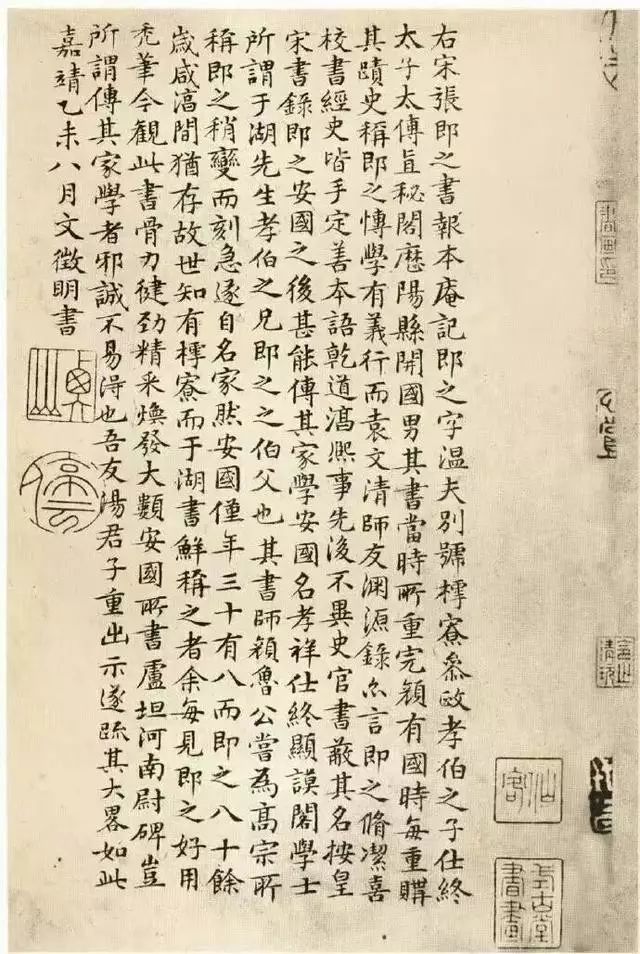 右宋張即之書報本庵記即之字溫夫別號樗寮叅政孝伯之子仕終
太子太傅直秘閣歷陽縣開國男其書當時所重完顏有國時每重購
其蹟史稱即之博學有義行而袁文清師友淵源錄亦言即之脩潔喜
校書經史皆手定善本語乾道淳熙事先後不異史官書蔽其名按皇
宋書錄即之安國之後甚能傳其家學安國名孝祥仕終顯謨閣學士
所謂于湖先生孝伯之兄即之之伯父也其書師顏魯公嘗為高宗所
稱即之稍變而刻急遂自名家然安國僅年三十有八而即之八十餘
歲咸淳間猶存故世知有樗寮而于湖書鮮稱之者余每見即之好用
禿筆今觀此書骨力健勁精采煥發大類安國所書盧坦河南尉碑豈
所謂傳其家學者邪誠不易得也吾友湯君子重出示遂疏其大畧如此
嘉靖乙未八月文徵明書